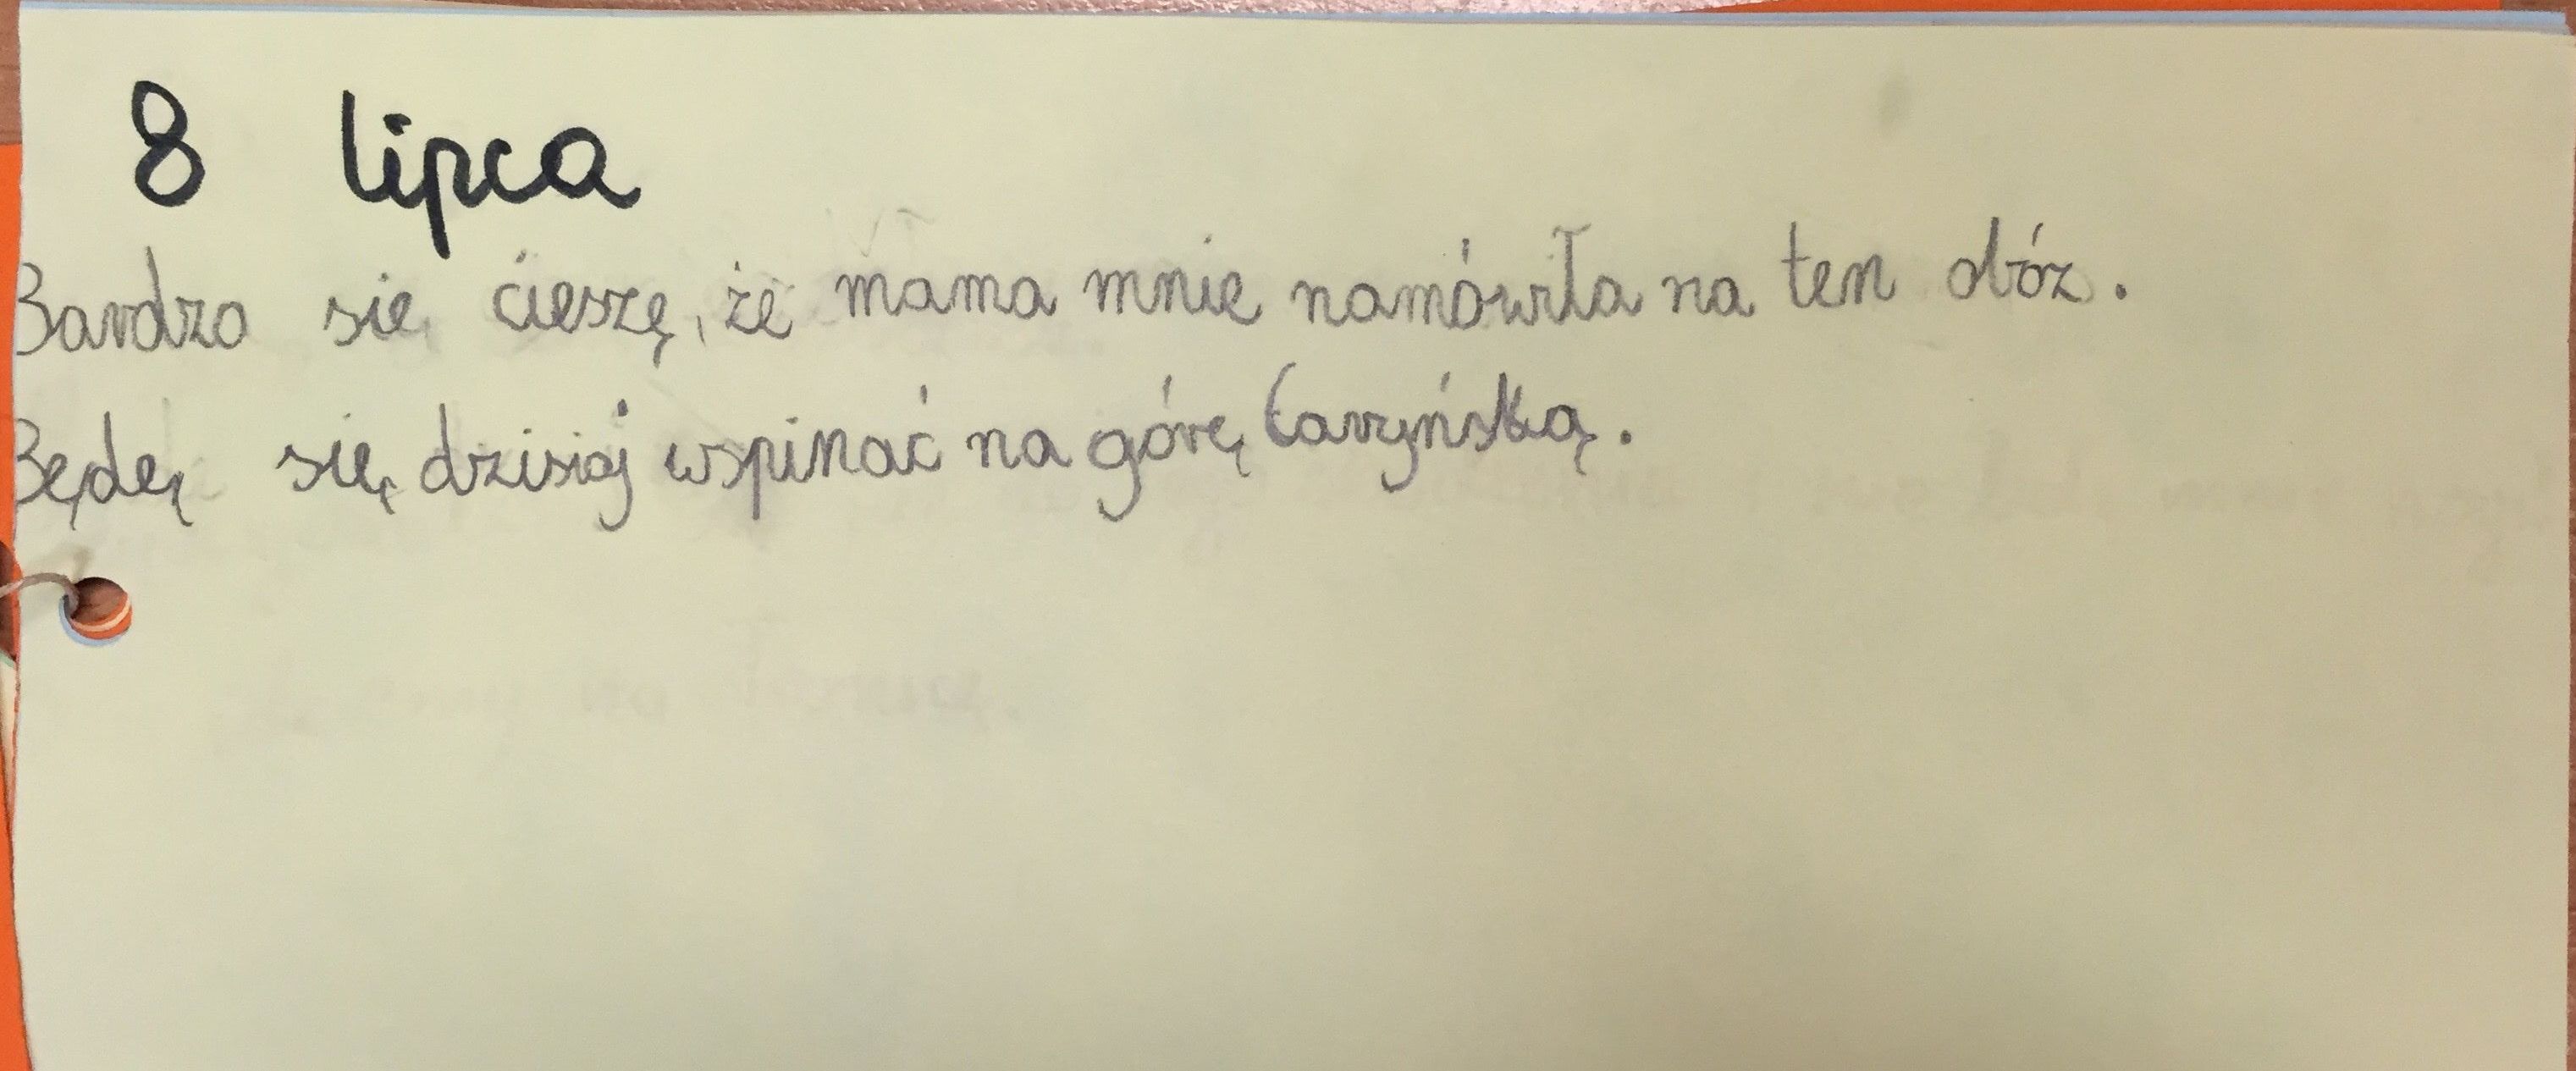 8 lipca
Bardzo się ćieszę, że mama mnie namówiła na ten obóz.
Będę się dzisiaj wspinać na górę Caryńską.